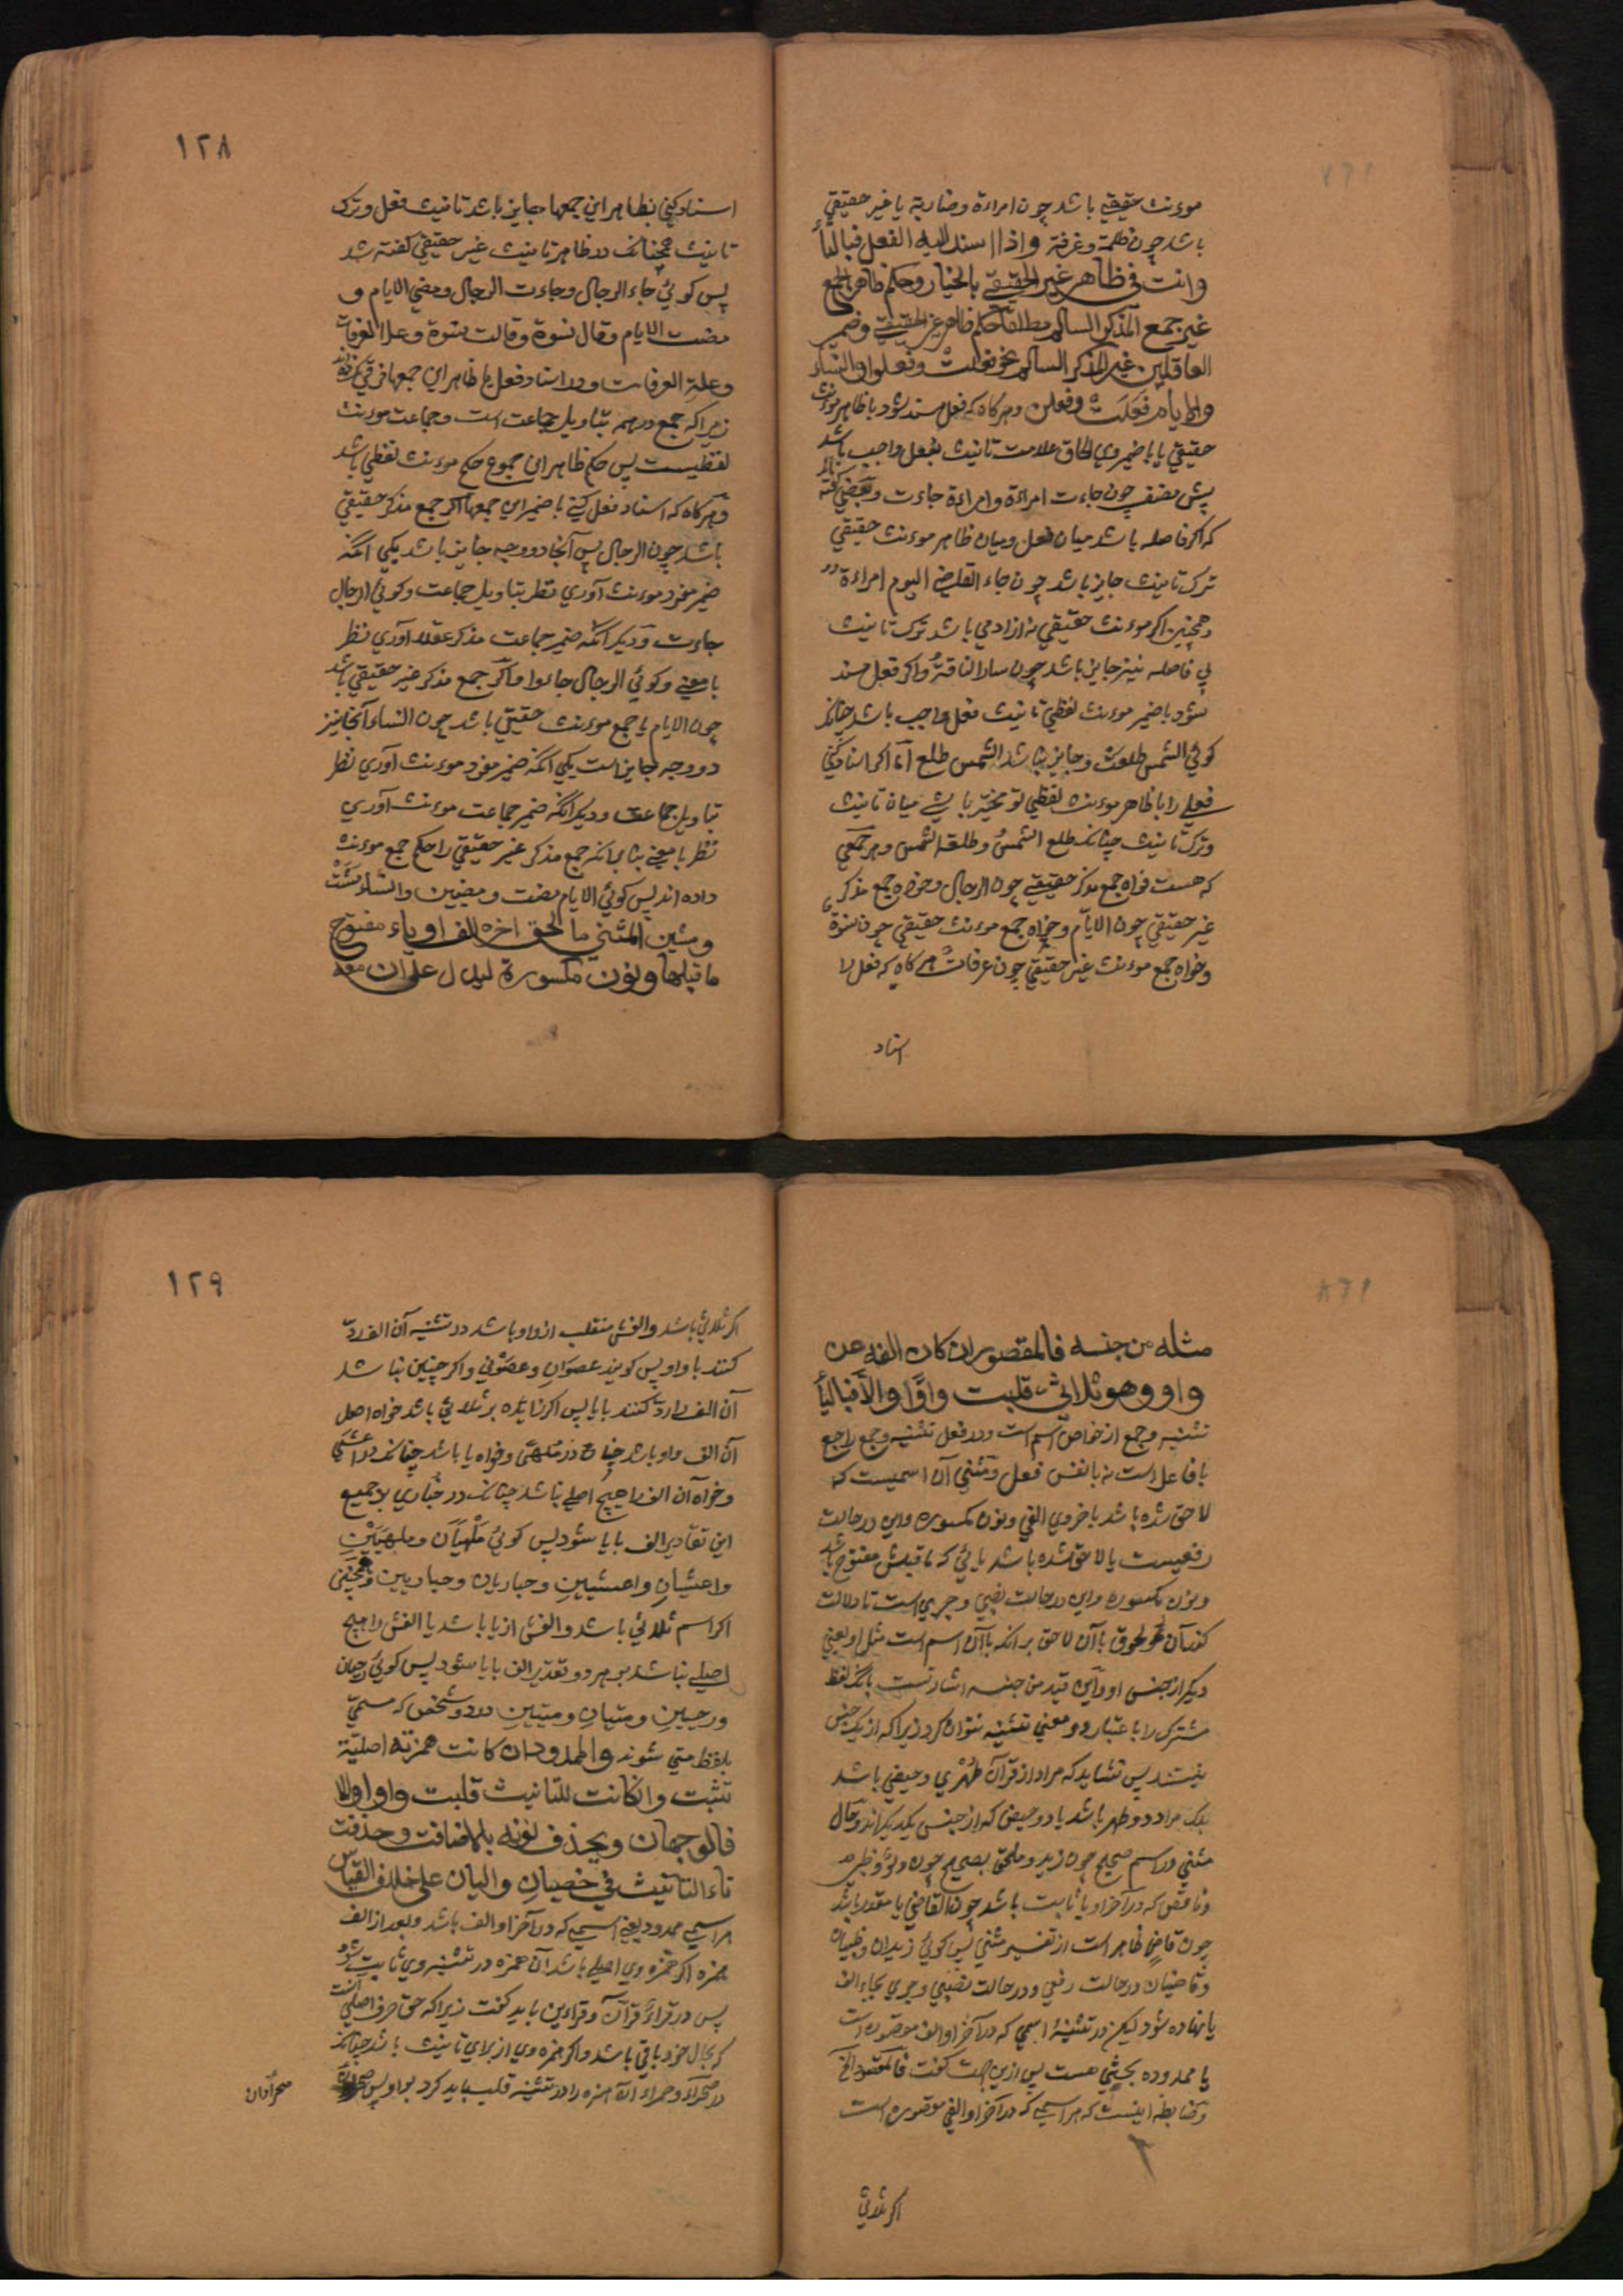 موءنث حقیقی باشد چون امراءة و ضاربة یا غیر حقیقی
باشد چون ظلمة و غرفة و اذا اسند الیه الفعل فبالتاء
وانت فی ظاهر غیر الحقیقی بالخیار و حکم ظاهر الجمع
غیر جمع المذکر السالم مطلقا حکم ظاهر غیر الحقیقی و ضمیر
العاقلین غیر المذکر السالم نحو فعلت و فعلوا والنساء
والایام فعلت و فعلن و هرکاه که فعل مسند شود با ظاهر موءنث
حقیقی یا با ضمیر وی الحاق علامت تانیث بفعل واجب باشد
پش مصنف چون جاءت امراءة و امراءة جاءت و بعضی گفته اند
که اکر فاصله باشد میان فعل و میان ظاهر موءنث حقیقی
ترک تانیث جایز باشد چون جاء القاضی الیوم امراءة
و همچنین اکر موءنث حقیقی نه از آدمی باشد ترک تانیث
بی فاصله نیز جایز باشد چون سار الناقة و اکر فعل مسند
شود با ضمیر موءنث لفظی تانیث فعل واجب باشد چنانکه
کوئی الشمس طلعت و جایز نباشد الشمس طلع اما اکر اسناد کنی
فعلی را با ظاهر موءنث لفظی تو مخیر باشی میان تانیث
و ترک تانیث چنانکه طلع الشمس و طلعت الشمس و هر جمعی
که هست خواه جمع مذکر حقیقی چون الرجال و خواه جمع مذکر
غیر حقیقی چون الایام و خواه جمع موءنث حقیقی چون نسوة
و خواه جمع موءنث غیر حقیقی چون غرفات هرکاه که فعل را
اسناد
۱۲۸
اسناد کنی بظاهر این جمعها جایز باشد تانیث فعل و ترک
تانیث همچنانکه در ظاهر تانیث غیر حقیقی گفته شد
پس کوئی جاء الرجال و جاءت الرجال و مضی الایام و
مضت الایام و قال نسوة و قالت نسوة و علا الغرفات
و علت الغرفات و در اسناد فعل با ظاهر این جمعها فرقی نکردند
زیرا که جمع در همه بتاویل جماعت است و جماعت موءنث
لفظیست پس حکم ظاهر این جموع حکم موءنث لفظی باشد
و هرکاه که اسناد فعل کنی با ضمیر این جمعها اکر جمع مذکر حقیقی
باشد چون الرجال پس آنجا دو وجه جایز باشد یکی آنکه
ضمیر مفرد موءنث آوری نظر بتاویل جماعت و کوئی الرجال
جاءت و دیکر آنکه ضمیر جماعت مذکر عقلا آوری نظر
با معنی و کوئی الرجال جاءوا و اکر جمع مذکر غیر حقیقی باشد
چون الایام یا جمع موءنث حقیقی باشد چون النساء آنجا نیز
دو وجه جایز است یکی آنکه ضمیر مفرد موءنث آوری نظر
بتاویل جماعت و دیکر آنکه ضمیر جماعت موءنث آوری
نظر با معنی بنابر آنکه جمع مذکر غیر حقیقی را حکم جمع موءنث
داده اند پس کوئی الایام مضت و مضین والنساء مشت
و مشین المثنی ما لحق آخره الف او یاء مفتوح
ما قبلها و نون مکسورة لیدل علی ان معه
مثله من جنسه فالمقصور ان کان الفه عن
واو و هو ثلاثی قلبت واوا و الا فبالیاء
تثنیه و جمع از خواص اسم است و در فعل تثنیه و جمع راجع
با فاعل است نه با نفس فعل و مثنی آن اسمیست که
لاحق شده باشد باخر وی الفی و نون مکسوره و این در حالت
رفعیست یا لاحق شده باشد یائی که ما قبلش مفتوح باشد
و نون مکسوره و این در حالت نصبی و جری است تا دلالت
کند آن لحوق با آن لاحق بر آنکه با آن اسم است مثل او یعنی
دیکر از جنس او و این قید من جنسه اشارتست بانکه لفظ
مشترک را باعتبار دو معنی تثنیه نتوان کرد زیرا که از یک جنس
نیستند پس نشاید که مراد از قرآن طهری و حیضی باشد
بلکه مراد دو طهر باشد یا دو حیض که از جنس یکدیکراند و حال
مثنی در اسم صحیح چون زید و ملحق بصحیح چون دلو و ظبی
و ناقص که در آخر او یا ثابت باشد چون القاضی یا مقدر باشد
چون قاض ظاهر است از تفسیر مثنی پس کوئی زیدان و ظبیان
و قاضیان در حالت رفعی و در حالت نصبی و جری بجاء الف
یا نهاده شود لیکن در تثنیهٔ اسمی که در آخر او الف مقصوره است
یا ممدوده بحثی هست پس ازین جهت کفت فالمقصور الخ
و ضابطه اینست که هر اسمی که در آخر او الفی مقصوره است
اکر ثلاثی
۱۲۹
اکر ثلاثی باشد و الفش منقلب از واو باشد در تثنیه آن الف رد
کنند با واو پس کویند عصوان و عصوین و اکر چنین نباشد
آن الف را رد کنند با یا پس اکر زیاده بر ثلاثی باشد خواه اصل
آن الف واو باشد چنانکه در ملهی و خواه یا باشد چنانکه در اعشی
و خواه آن الف را هیچ اصلی نباشد چنانکه در حباری بر جمیع
این تقادیر الف با یا شود پس کوئی ملهیان و ملهیین
و اعشیان و اعشیین و حباریان و حباریین و همچنین
اکر اسم ثلاثی باشد و الفش از یا باشد یا الفش را هیچ
اصلی نباشد بر هر دو تقدیر الف با یا شود پس کوئی رحیان
و رحیین و متیان و متیین در دو شخص که مسمی
بلفظ متی شوند والممدود ان کانت همزته اصلیة
تثبت و ان کانت للتانیث قلبت واوا و الا
فالوجهان و یحذف نونه بالاضافت و حذفت
تاء التانیث فی خصیان و الیان علی خلاف القیاس
هر اسمی ممدود یعنی اسمی که در آخر او الف باشد و بعد از الف
همزه اکر همزه وی اصلی باشد آن همزه در تثنیه وی ثابت شود
پس در قراء قراآن و قراءین باید کفت زیرا که حق حرف اصلی آنست
که بحال خود باقی باشد و اکر همزه وی از برای تانیث باشد چنانکه
در صحراء و حمراء آن همزه را در تثنیه قلب باید کرد بواو پس
صحراوان